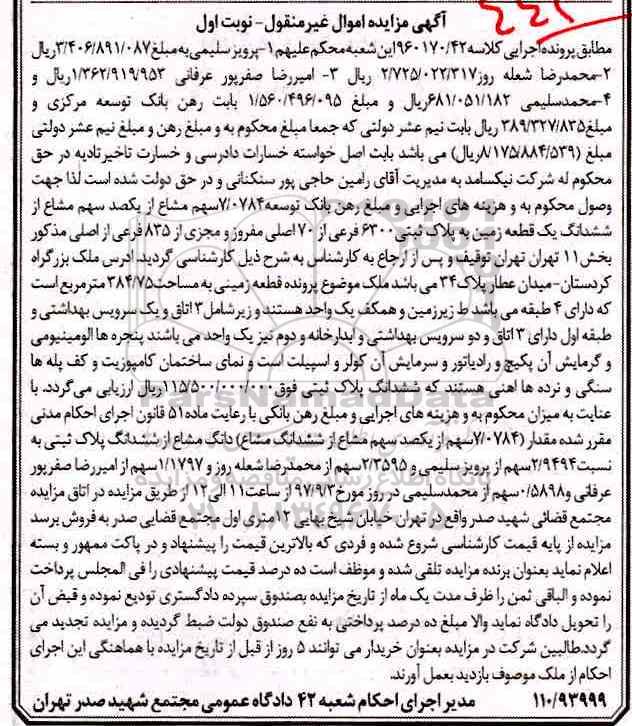 ۲۲۱
آگهی مزایده اموال غیر منقول - نوبت اول
مطابق پرونده اجرایی کلاسه ۹۶۰۱۷۰/۴۲ این شعبه محکم علیهم ۱- پرویز سلیمی به مبلغ ۳/۴۰۶/۸۹۱/۰۸۷ ریال
۲-محمدرضا شعله روز ۲/۷۲۵/۰۲۲/۳۱۷ ریال ۳- امیررضا صفرپور عرفانی ۱/۳۶۲/۹۱۹/۹۵۳ ریال و
۴-محمدسلیمی ۶۸۱/۰۵۱/۱۸۲ ریال و مبلغ ۱/۵۶۰/۴۹۶/۰۹۵ بابت رهن بانک توسعه مرکزی و
مبلغ ۳۸۹/۳۲۷/۸۳۵ ریال بابت نیم عشر دولتی که جمعا مبلغ محکوم به و مبلغ رهن و مبلغ نیم عشر دولتی
مبلغ (۸/۱۷۵/۸۸۴/۵۳۹ ریال) می باشد بابت اصل خواسته خسارات دادرسی و خسارت تاخیرتادیه در حق
محکوم له شرکت نیکسامد به مدیریت آقای رامین حاجی پور سنکتانی و در حق دولت شده است لذا جهت
وصول محکوم به و هزینه های اجرایی و مبلغ رهن بانک توسعه ۷/۰۷۸۴ سهم مشاع از یکصد سهم مشاع از
ششدانگ یک قطعه زمین به پلاک ثبتی ۶۳۰۰ فرعی از ۷۰ اصلی مفروز و مجزی از ۸۳۵ فرعی از اصلی مذکور
بخش ۱۱ تهران تهران توقیف و پس از ارجاع به کارشناس به شرح ذیل کارشناسی گردید. ادرس ملک بزرگراه
کردستان-میدان عطار پلاک ۳۴ می باشد ملک موضوع پرونده قطعه زمینی به مساحت ۳۸۴/۷۵ مترمربع است
که دارای ۴ طبقه می باشد ط زیرزمین و همکف یک واحد هستند و زیر شامل ۳ اتاق و یک سرویس بهداشتی و
طبقه اول دارای ۳ اتاق و دو سرویس بهداشتی و ابدارخانه و دوم نیز یک واحد می باشند پنجره ها الومینیومی
و گرمایش آن پکیج و رادیاتور و سرمایش آن کولر و اسپیلت است و نمای ساختمان کامپوزیت و کف پله ها
سنگی و نرده ها اهنی هستند که ششدانگ پلاک ثبتی فوق ۱۱۵/۵۰۰/۰۰۰/۰۰۰ ریال ارزیابی می گردد. با
عنایت به میزان محکوم به و هزینه های اجرایی و مبلغ رهن بانکی با رعایت ماده ۵۱ قانون اجرای احکام مدنی
مقرر شده مقدار (۷/۰۷۸۴ سهم از یکصد سهم مشاع از ششدانگ مشاع) دانگ مشاع از ششدانگ پلاک ثبتی به
نسبت ۲/۹۴۹۴ سهم از پرویز سلیمی و ۲/۳۵۹۵ سهم از محمدرضا شعله روز و ۱/۱۷۹۷ سهم از امیررضا صفرپور
عرفانی و ۰/۵۸۹۸ سهم از محمدسلیمی در روز مورخ ۹۷/۹/۳ از ساعت ۱۱ الی ۱۲ از طریق مزایده در اتاق مزایده
مجتمع قضائی شهید صدر واقع در تهران خیابان شیخ بهایی ۱۲ متری اول مجتمع قضایی صدر به فروش برسد
مزایده از پایه قیمت کارشناسی شروع شده و فردی که بالاترین قیمت را پیشنهاد و در پاکت ممهور و بسته
اعلام نماید بعنوان برنده مزایده تلقی شده و موظف است ده درصد قیمت پیشنهادی را فی المجلس پرداخت
نموده و الباقی ثمن را ظرف مدت یک ماه از تاریخ مزایده بصندوق سپرده دادگستری تودیع نموده و قبض آن
را تحویل دادگاه نماید والا مبلغ ده درصد پرداختی به نفع صندوق دولت ضبط گردیده و مزایده تجدید می
گردد.طالبین شرکت در مزایده بعنوان خریدار می توانند ۵ روز از قبل از تاریخ مزایده با هماهنگی این اجرای
احکام از ملک موصوف بازدید بعمل آورند.
۱۱۰/۹۳۹۹۹ مدیر اجرای احکام شعبه ۴۲ دادگاه عمومی مجتمع شهید صدر تهران
ParsNamadData